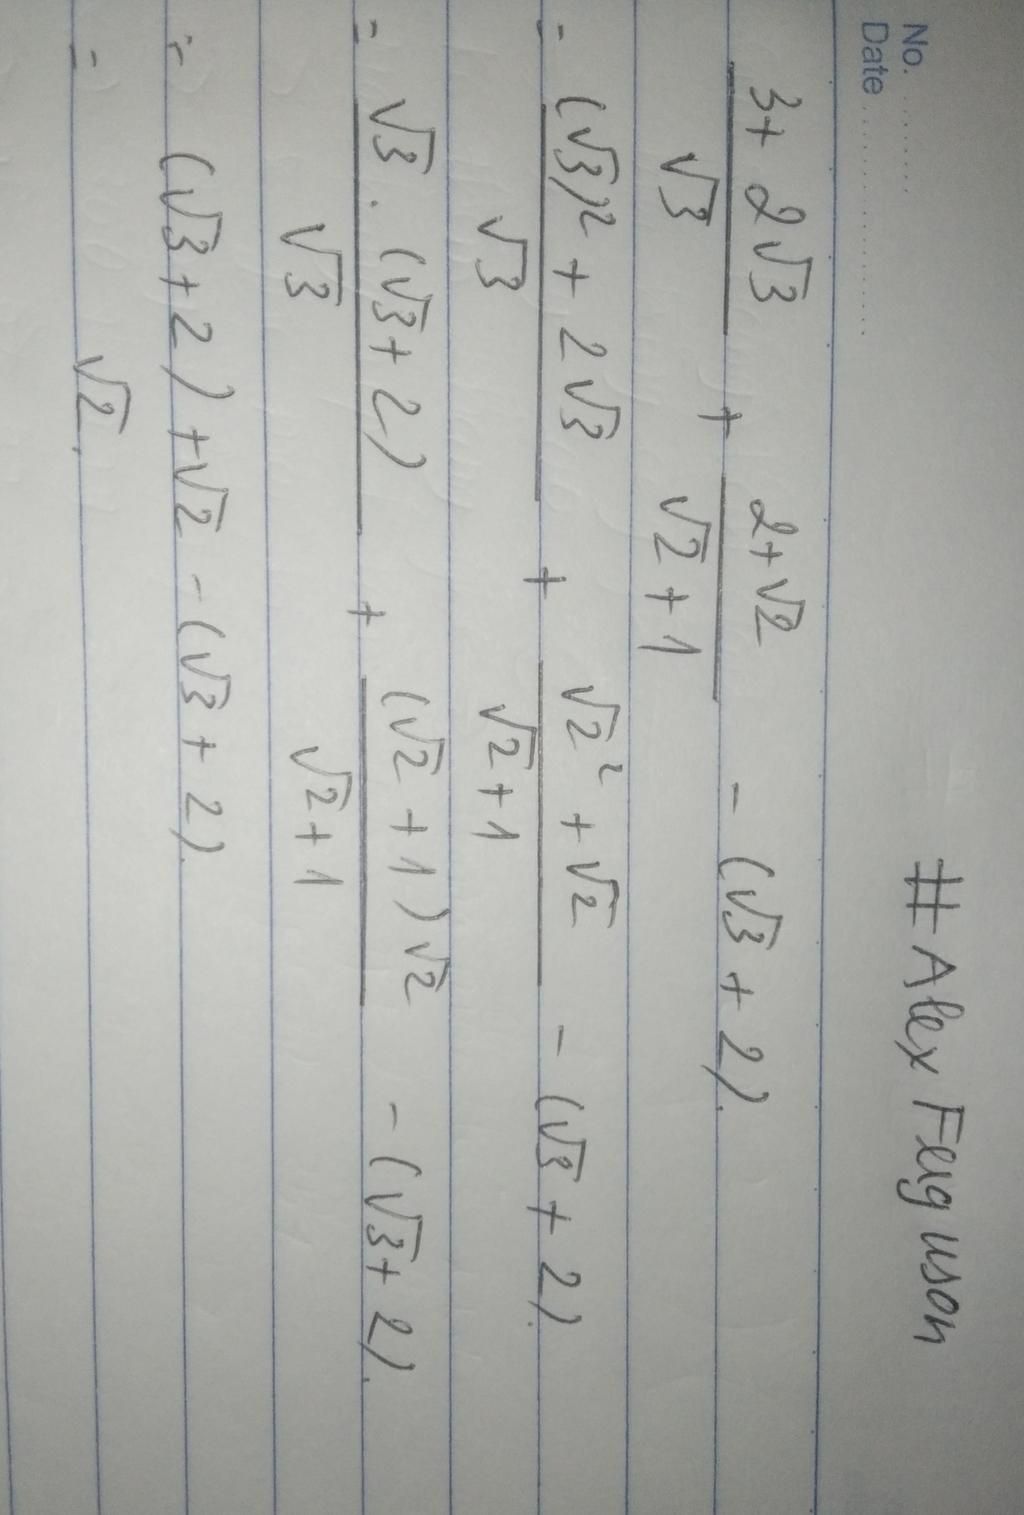 No. ........
Date ........................
# Alex Ferguson
3+ 2√3 / √3 + 2+√2 / √2 + 1 - (√3 + 2).
= (√3)² + 2√3 / √3 + √2² + √2 / √2 + 1 - (√3 + 2).
= √3 . (√3 + 2) / √3 + (√2 + 1) √2 / √2 + 1 - (√3 + 2).
= (√3 + 2) + √2 - (√3 + 2).
= √2.